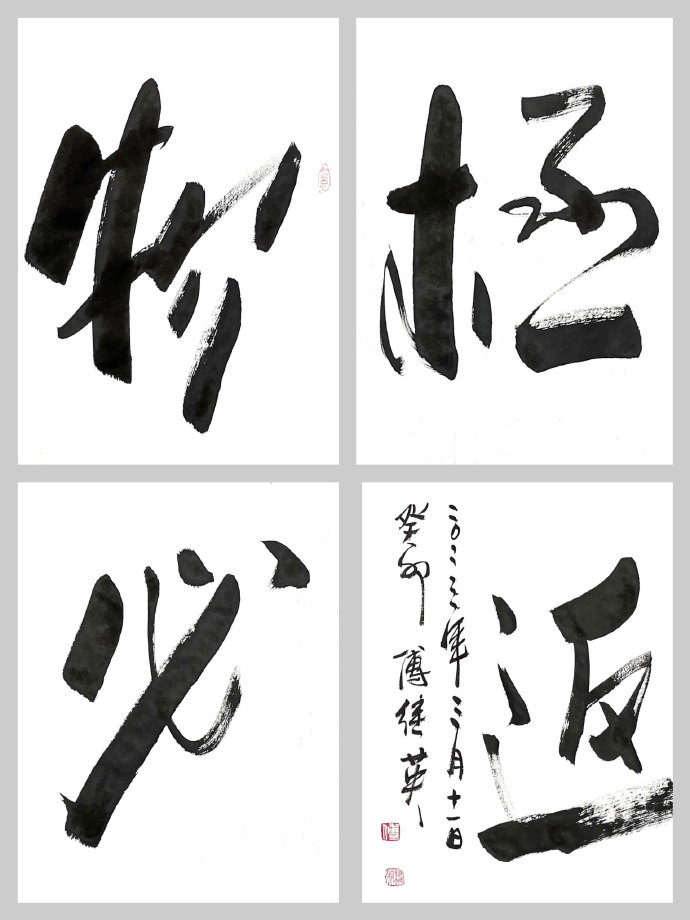 物
極
必
返
二〇二三年三月十一日
癸卯 傅继英